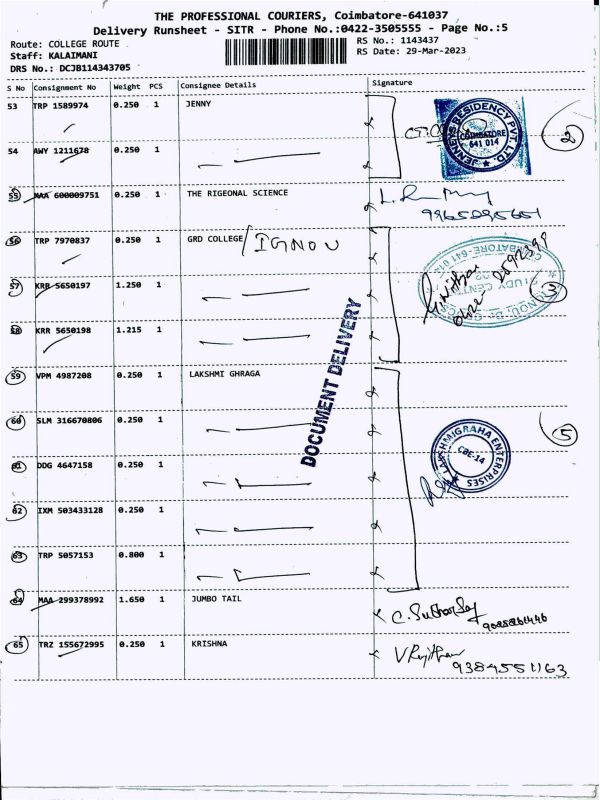 THE PROFESSIONAL COURIERS, Coimbatore-641037
Delivery Runsheet - SITR - Phone No.:0422-3505555 - Page No.:5
Route: COLLEGE ROUTE
Staff: KALAIMANI
DRS No.: DCJB114343705
RS No.: 1143437
RS Date: 29-Mar-2023
S No Consignment No Weight PCS Consignee Details Signature
53 TRP 1589974 0.250 1 JENNY
JENNEYS RESIDENCY PVT. LTD.
COIMBATORE
641 014
2
54 AWY 1211678 0.250 1
55 MAA 600009751 0.250 1 THE RIGEONAL SCIENCE
56 TRP 7970837 0.250 1 GRD COLLEGE/IGNOU
57 KRR 5650197 1.250 1
3
58 KRR 5650198 1.215 1
DOCUMENT DELIVERY
59 VPM 4987208 0.250 1 LAKSHMI GHRAGA
60 SLM 316670806 0.250 1
LAKSHMIGRAHA ENTERPRISES
CBE-14
5
61 DDG 4647158 0.250 1
62 IXM 503433128 0.250 1
63 TRP 5057153 0.800 1
64 MAA 299378992 1.650 1 JUMBO TAIL
65 TRZ 155672995 0.250 1 KRISHNA
9384551163